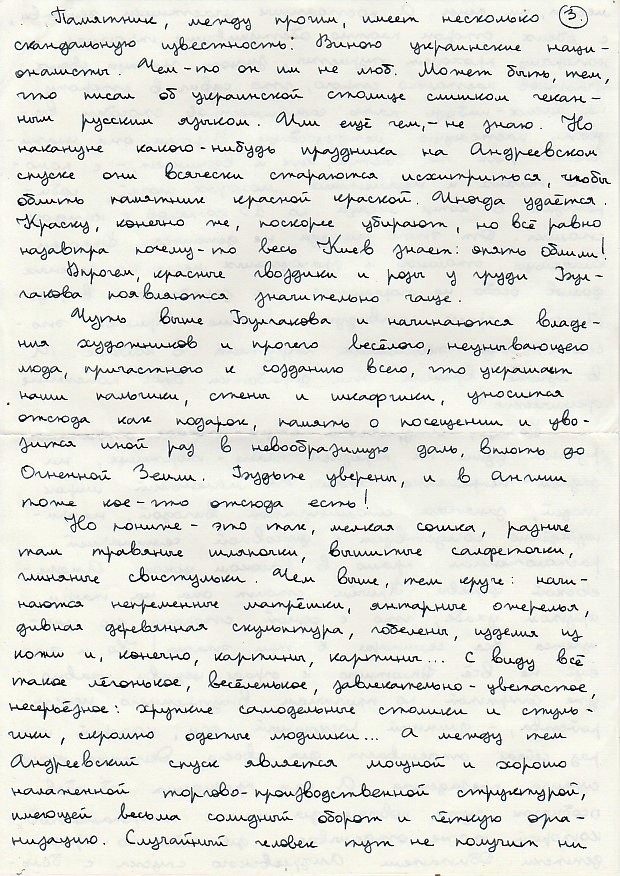 Памятник, между прочим, имеет несколько 3.
скандальную известность. Виною украинские наци-
оналисты. Чем-то он им не люб. Может быть, тем,
что писал об украинской столице слишком чекан-
ным русским языком. Или ещё чем,- не знаю. Но
накануне какого-нибудь праздника на Андреевском
спуске они всячески стараются исхитриться, чтобы
облить памятник красной краской. Иногда удаётся.
Краску, конечно же, поскорее убирают, но всё равно
назавтра почему-то весь Киев знает: опять облили!
Впрочем, красные гвоздики и розы у груди Бул-
гакова появляются значительно чаще.
Чуть выше Булгакова и начинаются владе-
ния художников и прочего весёлого, неунывающего
люда, причастного к созданию всего, что украшает
наши пальчики, стены и шкафчики, уносится
отсюда как подарок, память о посещении и уво-
зится иной раз в невообразимую даль, вплоть до
Огненной Земли. Будьте уверены, и в Англии
тоже кое-что отсюда есть!
Но пониже - это так, мелкая сошка, разные
там травяные шляпочки, вышитые салфеточки,
глиняные свистульки. Чем выше, тем круче: начи-
наются непременные матрёшки, янтарные ожерелья,
дивная деревянная скульптура, гобелены, изделия из
кожи и, конечно, картины, картины... С виду всё
такое лёгонькое, весёленькое, завлекательно-цветастое,
несерьёзное: хрупкие самодельные столики и стуль-
чики, скромно одетые людишки... А между тем
Андреевский спуск является мощной и хорошо
налаженной торгово-производственной структурой,
имеющей весьма солидный оборот и чёткую орга-
низацию. Случайный человек тут не получит ни